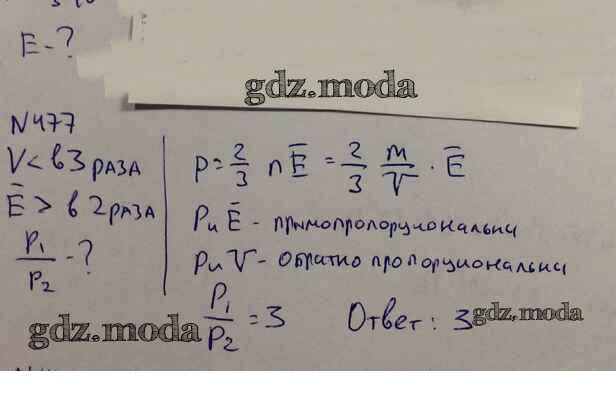 E - ?
gdz.moda
N477
V < в 3 раза
Ē > в 2 раза
P₁/P₂ - ?
p = 2/3 n Ē = 2/3 m/V · Ē
P и Ē - прямопропорциональны
P и V - обратно пропорциональны
P₁/P₂ = 3
Ответ: 3
gdz.moda
gdz.moda